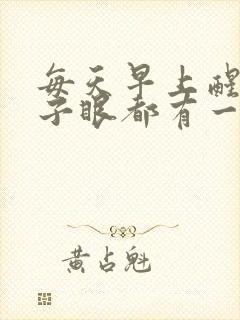 每天早上醒
子眼都有一
黄占魁